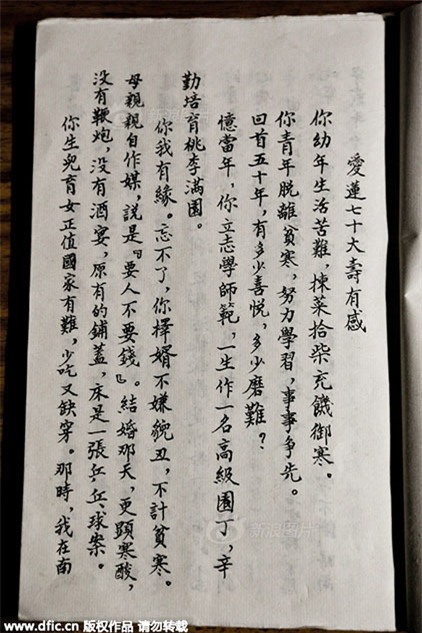 愛蓮七十大壽有感
你幼年生活苦難，揀菜拾柴充饑御寒。
你青年脫離貧寒，努力學習，事事争先。
回首五十年，有多少喜悦，多少磨難？
憶當年，你立志學師範，一生作一名高級園丁，辛
勤培育桃李满園。
你我有緣。忘不了，你擇婿不嫌貌丑，不計貧寒。
母親親自作媒，説是『要人不要錢』。結婚那天，更顕寒酸，
没有鞭炮，没有酒宴，原有的鋪蓋，床是一張乒乓球案。
你生兒育女正值國家有難，少吃又缺穿。那時，我在南
新浪图片
www.dfic.cn 版权作品 请勿转载